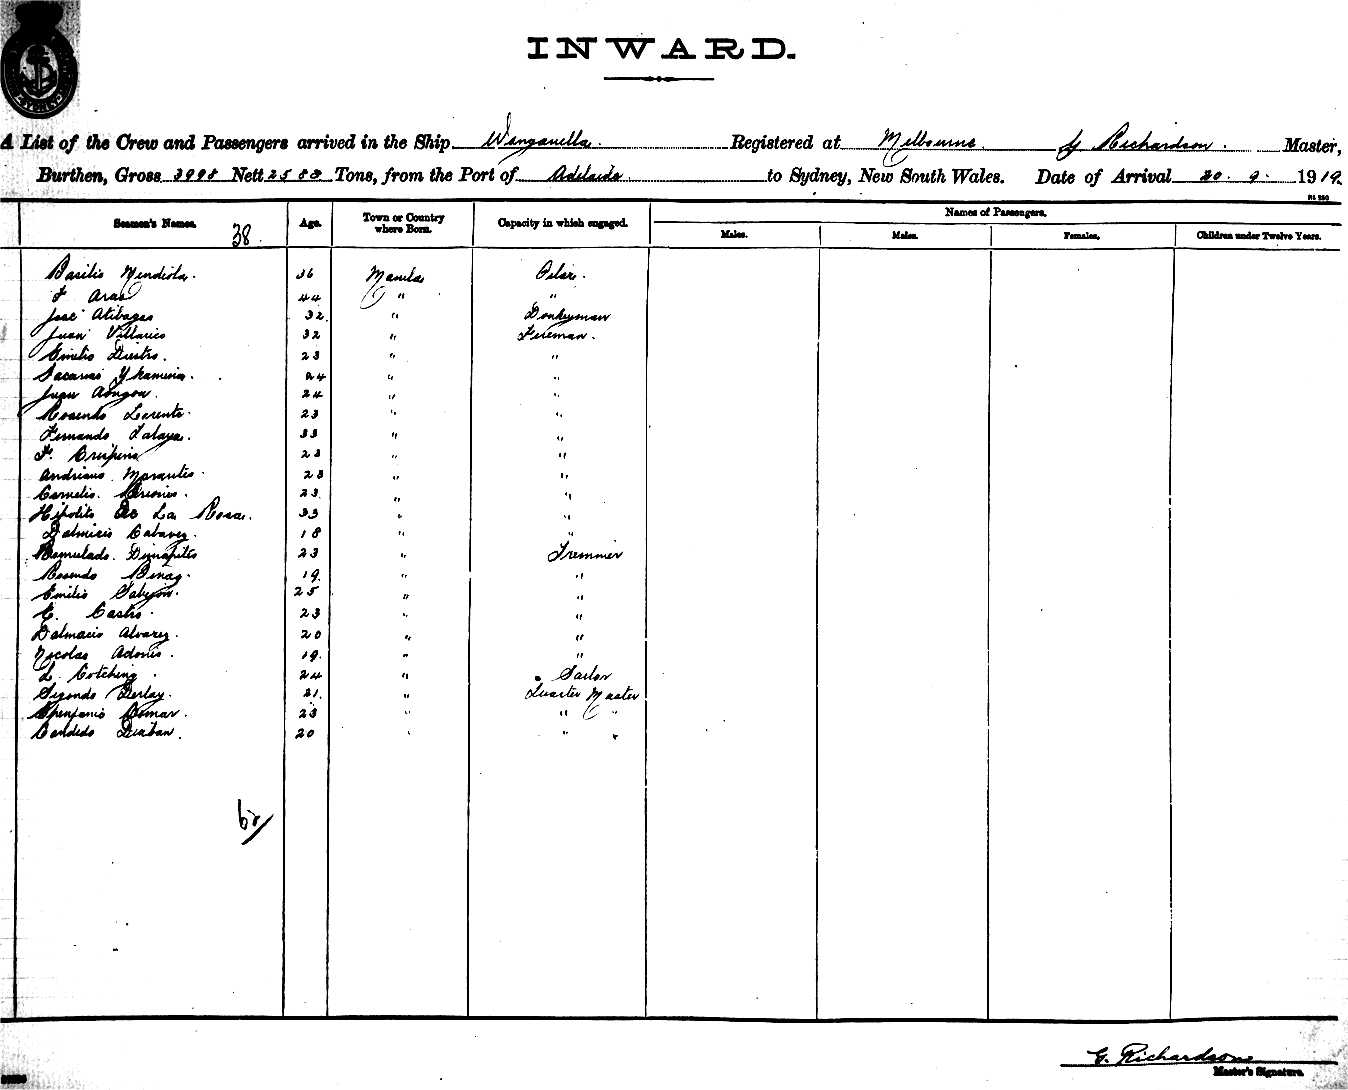 INWARD.
A List of the Crew and Passengers arrived in the Ship Wanganella. Registered at Melbourne. G Richardson. Master,
Burthen, Gross 3998 Nett 2583 Tons, from the Port of Adelaide to Sydney, New South Wales. Date of Arrival 20. 9. 1919.
Names of Passengers.
Seamen's Names. 38. Age. Town or Country where Born. Capacity in which engaged. Males. Males. Females. Children under Twelve Years.
Basilio Mendiola. 36 Manila Oiler.
F Aras 44 " "
Jose Atibagas 32 " Donkeyman
Juan Villarico 32 " Fireman.
Emilio Duestro. 23 " "
Sacarias 24 " "
Juan 24 " "
Rosendo Lerente. 23 " "
Fernando Talaya. 33 " "
F. Crispino 23 " "
Andriano Morantes. 23 " "
Cornelio. Briones. 23 " "
Hipolito De La Rosa. 33 " "
Dalmicio Cabarez. 18 " "
Romulado. Dimapiles 23 " Trimmer
Rosendo Binag. 19. " "
Emilio 25 " "
E. Castro. 23 " "
Dalmacio Alvarez. 20 " "
Nicolas Adonis. 19. " "
L. Cotching 24 " Sailor
Segondo Derlay. 21. " Quarter Master
Gomar. 23 " " "
Candido Duaban. 20 " " "
62/
G. Richardson
Master's Signature.